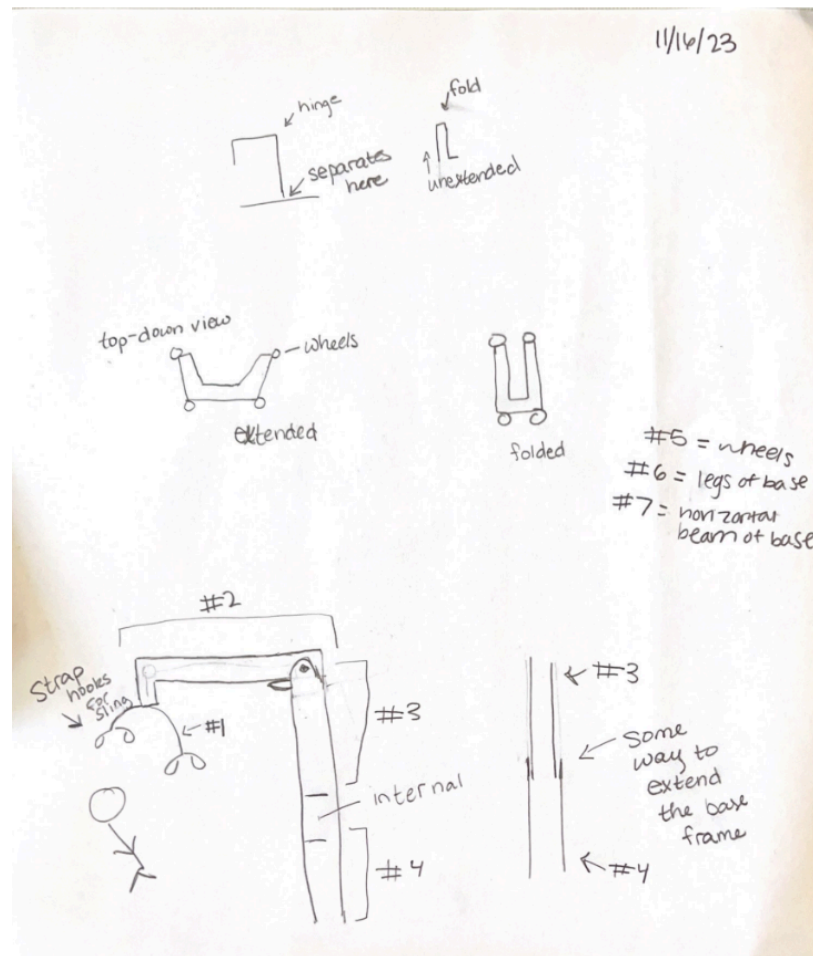 11/16/23
hinge
fold
separates
here
unextended
top-down view
wheels
extended
folded
#5 = wheels
#6 = legs of base
#7 = horizontal
beam of base
#2
Strap
hooks
for
sling
#1
#3
internal
#4
#3
some
way to
extend
the base
frame
#4